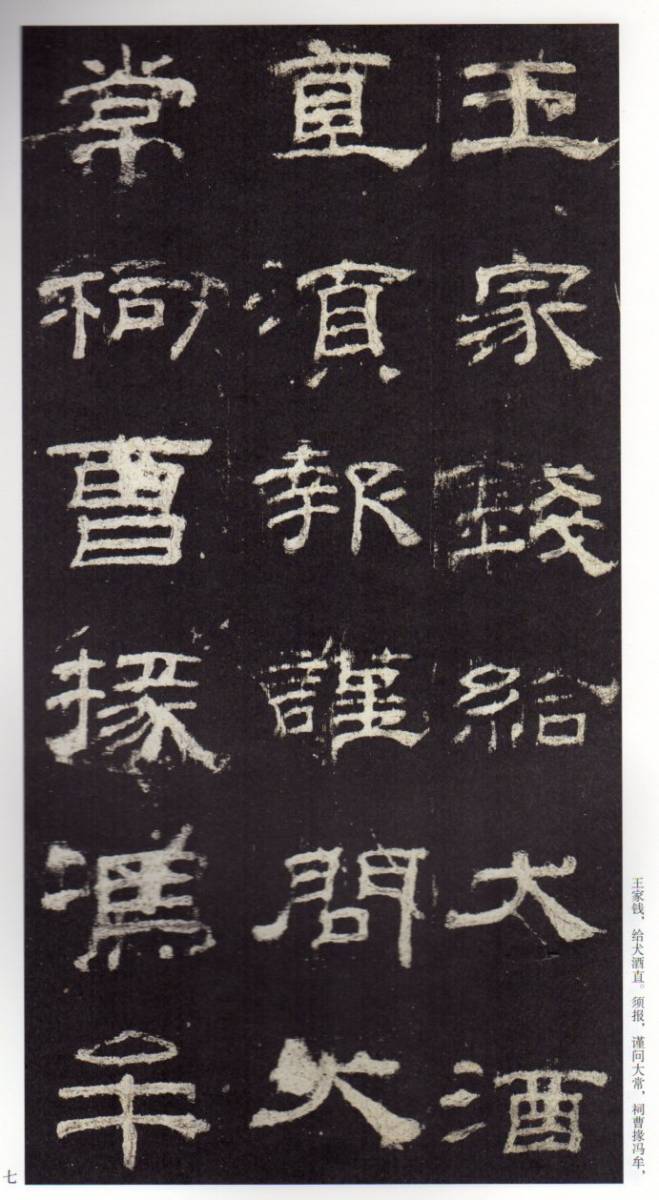 王家錢給犬酒
直須報謹問大
常祠曹掾馮牟
王家钱，给犬酒直。须报，谨问大常，祠曹掾冯牟，
七